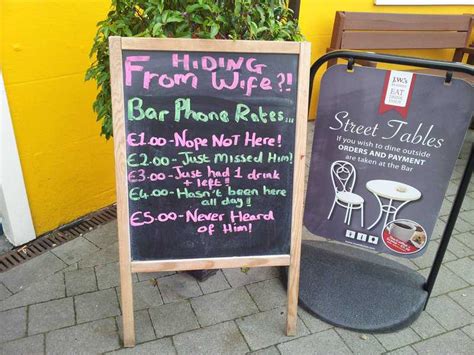 HIDING
From Wife?!
Bar Phone Rates...
€1.00 - Nope Not Here!
€2.00 - Just Missed Him!
€3.00 - Just had 1 drink
+ left!
€4.00 - Hasn't been here
all day!
€5.00 - Never Heard
of Him!
J.W.'s
EAT
DRINK
CHAT
Street Tables
If you wish to dine outside
ORDERS AND PAYMENT
are taken at the Bar